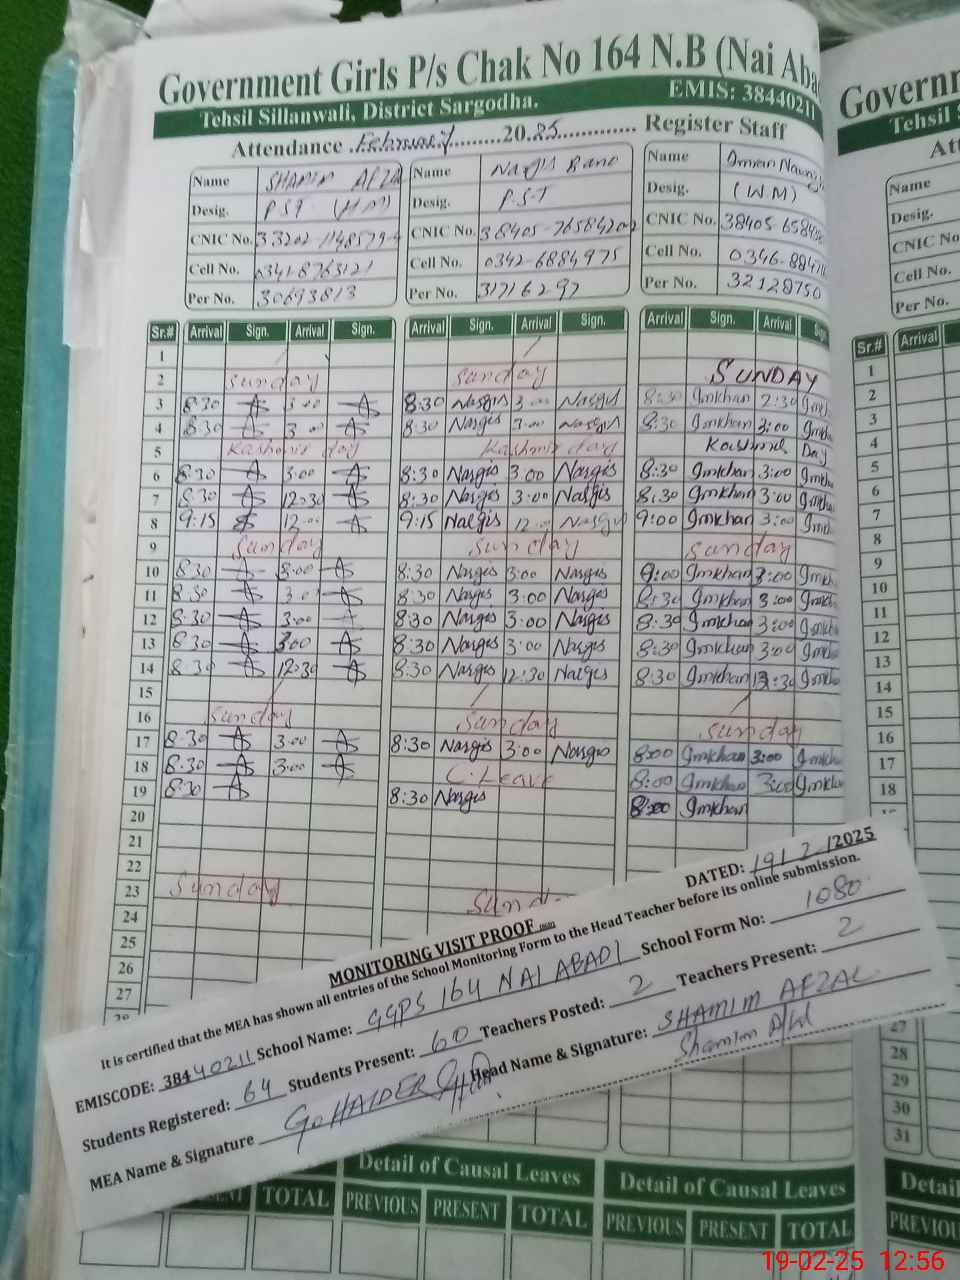 Government Girls P/s Chak No 164 N.B (Nai Aba
Tehsil Sillanwali, District Sargodha. EMIS: 38440211
Attendance February 2025 Register Staff
Name SHAMIM AFZA Name Nargis Bano Name Imran Nawaz
Desig. PST (HM) Desig. P.S.T Desig. (W.M)
CNIC No. CNIC No. CNIC No.
Cell No. 0341-8763121 Cell No. 0342-6884975 Cell No.
Per No. 30693813 Per No. 31716297 Per No. 32128750
Sr.# Arrival Sign. Arrival Sign. Arrival Sign. Arrival Sign. Arrival Sign. Arrival
1
2 Sunday Sunday SUNDAY
3 8:30 3:00 8:30 Nargis 3:00 Nargis 8:30 Imkhan 2:30
4 8:30 3:00 8:30 Nargis 3:00 Nargis 8:30 Imkhan 3:00
5 Kashmir day Kashmir day Kashmir Day
6 8:30 3:00 8:30 Nargis 3:00 Nargis 8:30 Imkhan 3:00
7 8:30 12:30 8:30 Nargis 3:00 Nargis 8:30 Imkhan 3:00
8 9:15 12:00 9:15 Nargis 12:00 Nargis 9:00 Imkhan 3:00
9 Sunday Sunday Sunday
10 8:30 3:00 8:30 Nargis 3:00 Nargis 9:00 Imkhan 3:00
11 8:30 3:00 8:30 Nargis 3:00 Nargis 8:30 Imkhan 3:00
12 8:30 3:00 8:30 Nargis 3:00 Nargis 8:30 Imkhan 3:00
13 8:30 3:00 8:30 Nargis 3:00 Nargis 8:30 Imkhan 3:00
14 8:30 12:30 8:30 Nargis 12:30 Nargis 8:30 Imkhan
15
16 Sunday Sunday Sunday
17 8:30 3:00 8:30 Nargis 3:00 Nargis 8:00 Imkhan 3:00
18 8:30 3:00 C.Leave 8:00 Imkhan 3:00
19 8:30 8:30 Nargis 8:00 Imkhan
20
21
22
23 Sunday Sund
24
25
26
27
MONITORING VISIT PROOF
DATED: 19/2/2025
It is certified that the MEA has shown all entries of the School Monitoring Form to the Head Teacher before its online submission.
EMISCODE: 38440211 School Name: GGPS 164 NAI ABADI School Form No: 1080
Students Registered: 64 Students Present: 60 Teachers Posted: 2 Teachers Present: 2
MEA Name & Signature G. HAIDER Head Name & Signature: SHAMIM AFZAL
Detail of Causal Leaves Detail of Causal Leaves
TOTAL PREVIOUS PRESENT TOTAL PREVIOUS PRESENT TOTAL
Govern
Tehsil
Att
Name
Desig.
CNIC No
Cell No.
Per No.
Sr.# Arrival
1
2
3
4
5
6
7
8
9
10
11
12
13
14
15
16
17
18
27
28
29
30
31
Detail
PREVIOUS
19-02-25 12:56